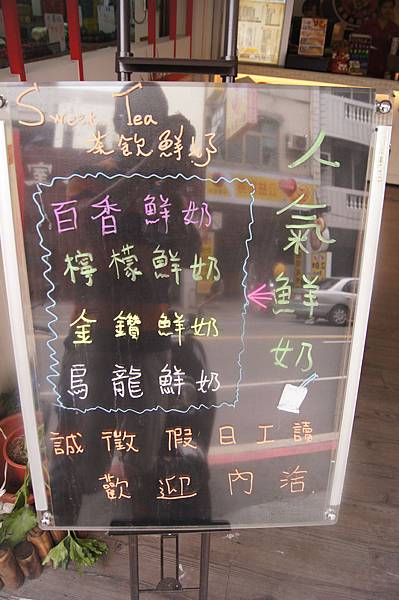 Sweet Tea
茶飲鮮奶
人氣鮮奶
百香鮮奶
檸檬鮮奶
金鑽鮮奶
烏龍鮮奶
誠徵假日工讀
歡迎內洽